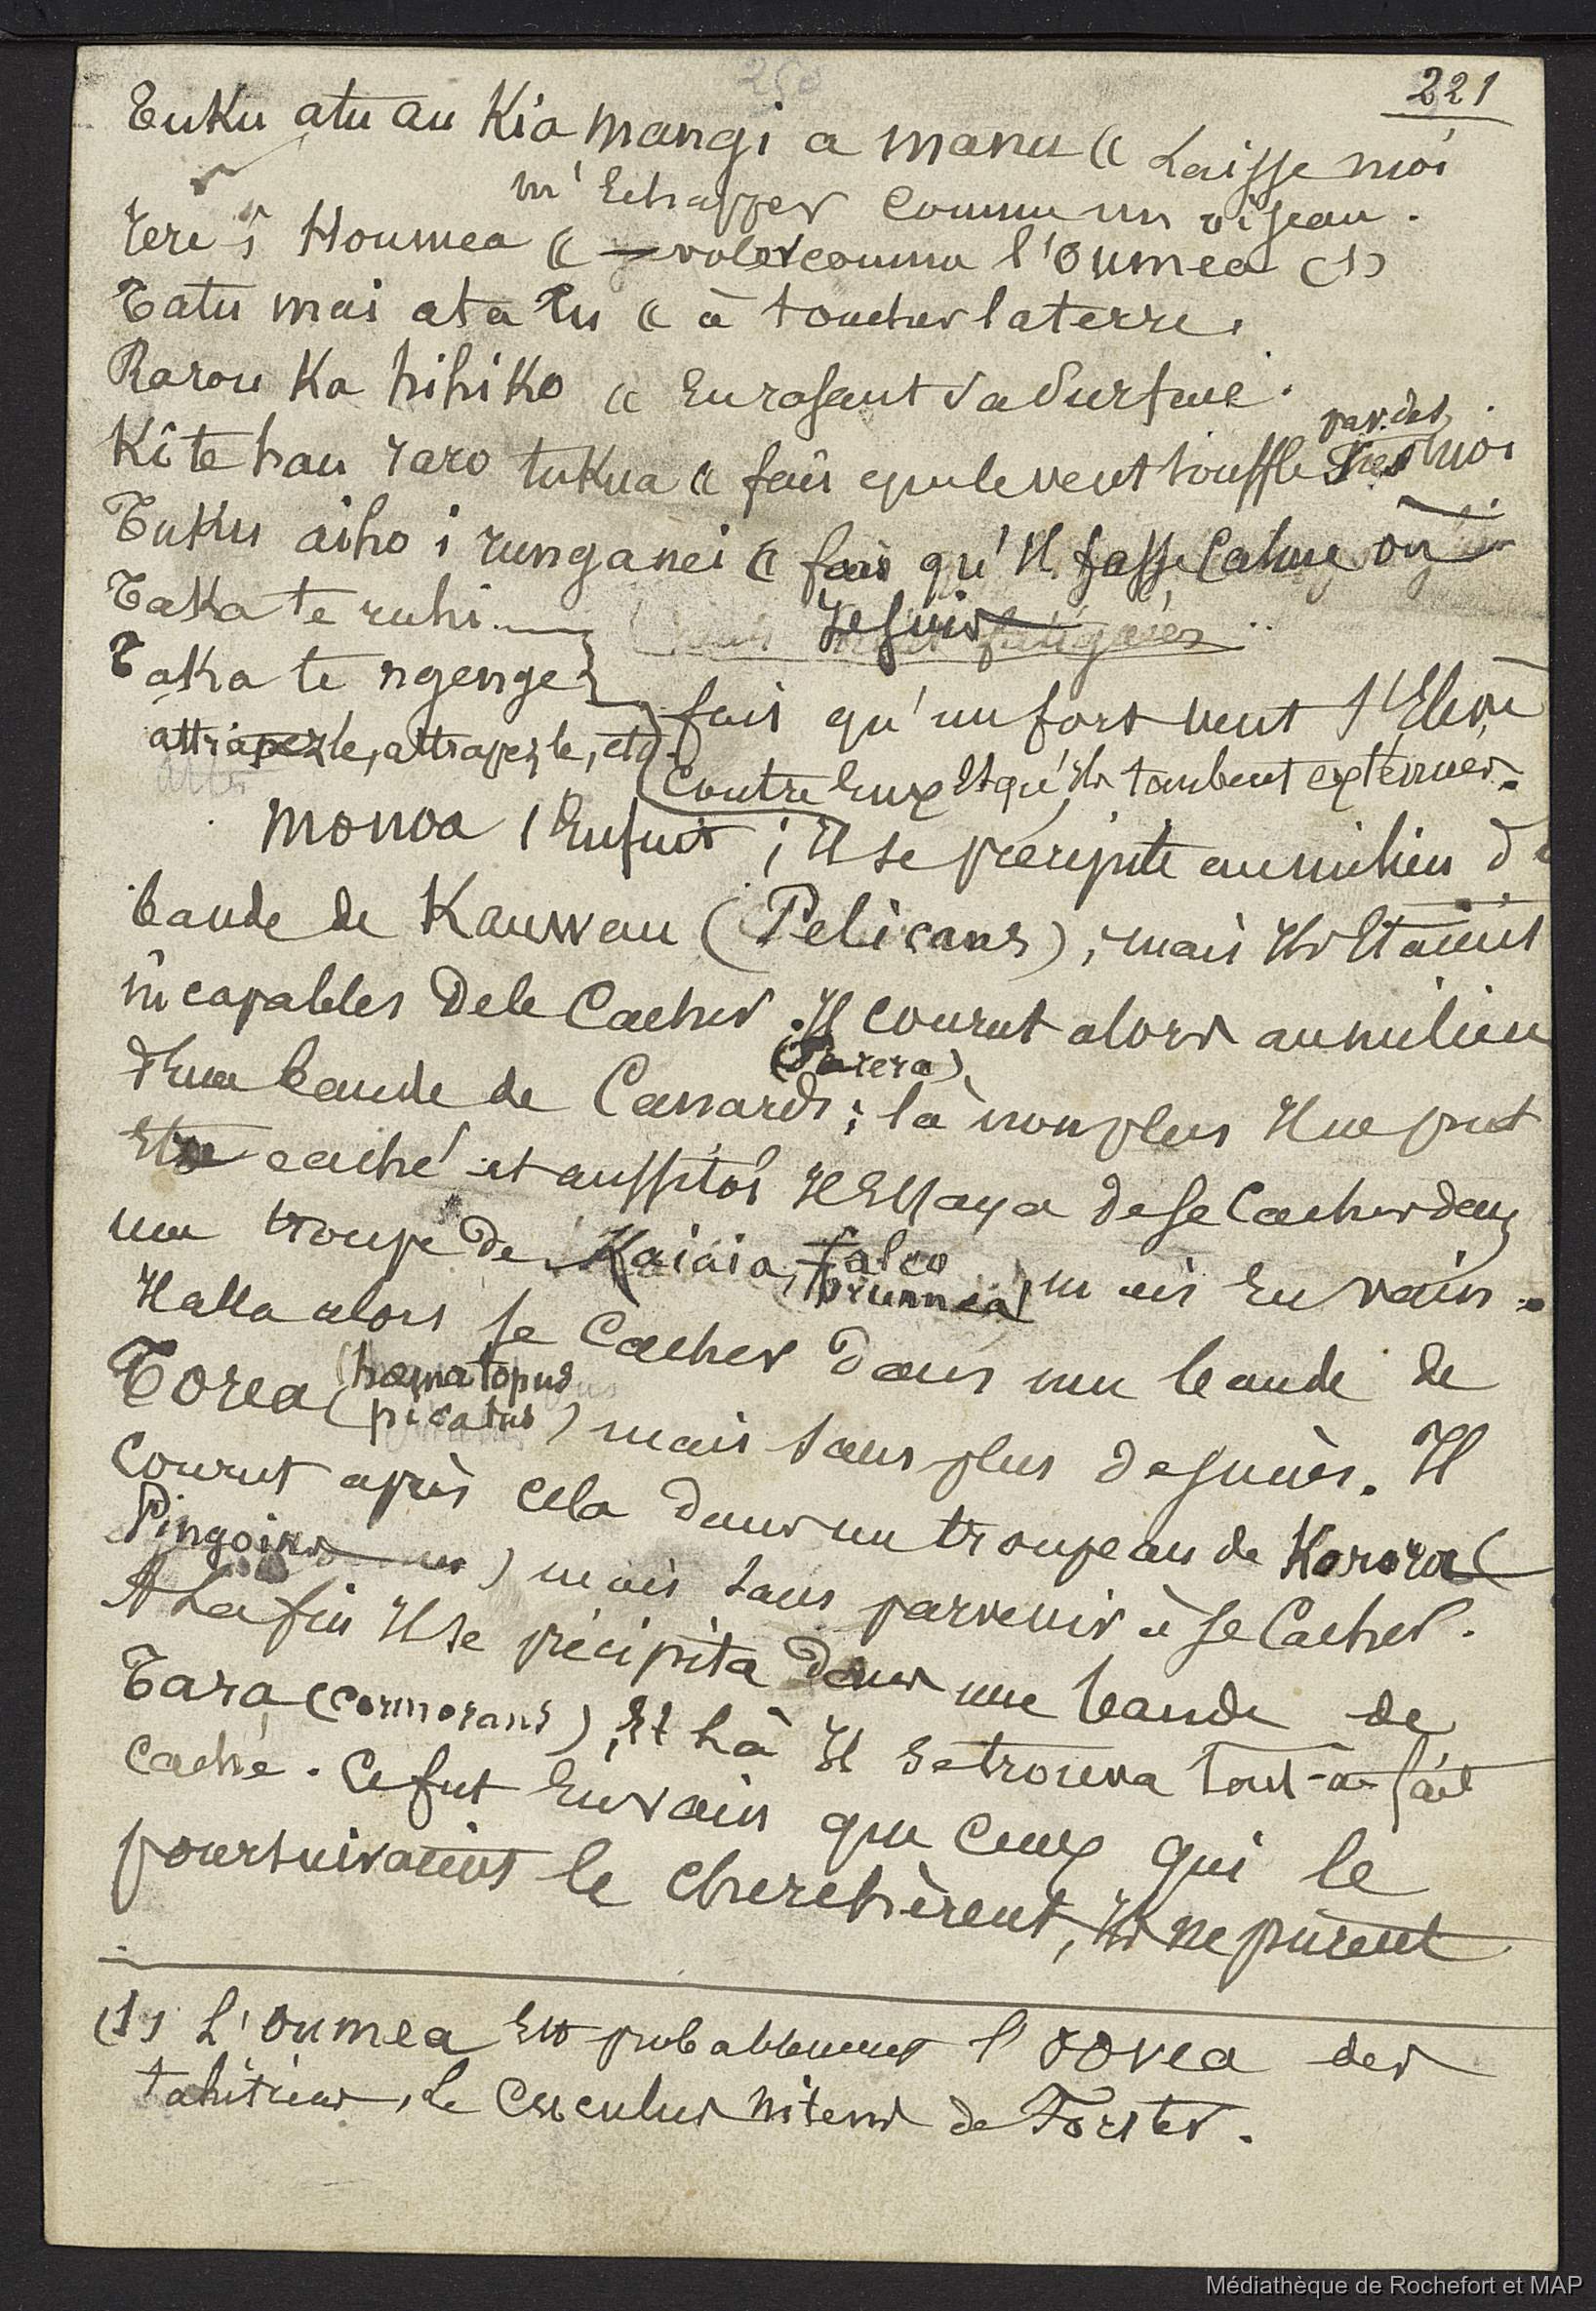 221
250
Tuku atu au Kia mangi a manu « Laisse moi
m'Echapper comme un oiseau.
Tere i Houmea « voler comme l'Oumea (1)
Tatu mai ata tu « à toucher la terre.
Rarou Ka hihiko « En rasant sa surface.
Ki te hau raro tukua « fais que le vent souffle par des moi
Tuku aiho i runganei « fais qu'Il fasse Calme où
Taka te ruhi Je suis
Taka te ngenge fais qu'un fort vent s'Elève
attrapez le, attrapez le, etc. Contre Eux Et qu'Ils tombent exténués.
Monoa s'Enfuit ; Il se précipite au milieu d'
bande de Kauwau (Pelicans) ; mais Ils Etaient
incapables de le Cacher. Il courut alors au milieu
d'une bande de Canards ; là non plus Il ne put
(Parera)
Etre caché et aussitôt Il Essaya de se Cacher dans
une troupe de Kaiaia, (falco
brunnea) mais En vain.
Il alla alors se Cacher dans une bande de
Torea (hæmatopus
picatus) mais sans plus de succès. Il
Courut après cela dans un troupeau de Korora (
Pingoins) mais sans parvenir à se Cacher.
A La fin Il se précipita dans une bande de
Tara (cormorans), Et Là Il se trouva tout-à-fait
caché. Ce fut En vain que Ceux qui le
poursuivaient le cherchèrent, Ils ne purent
(1) L'oumea Est probablement l'oovea des
tahitiens, Le Cuculus nitens de Forster.
Médiathèque de Rochefort et MAP